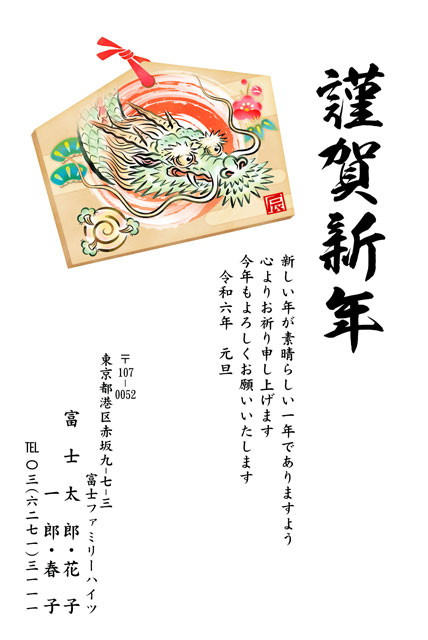 謹賀新年
辰
新しい年が素晴らしい一年でありますよう
心よりお祈り申し上げます
今年もよろしくお願いいたします
令和六年 元旦
〒107-0052
東京都港区赤坂九-七-三
富士ファミリーハイツ
富士太郎・花子
一郎・春子
TEL 〇三(六二七一)三一一一